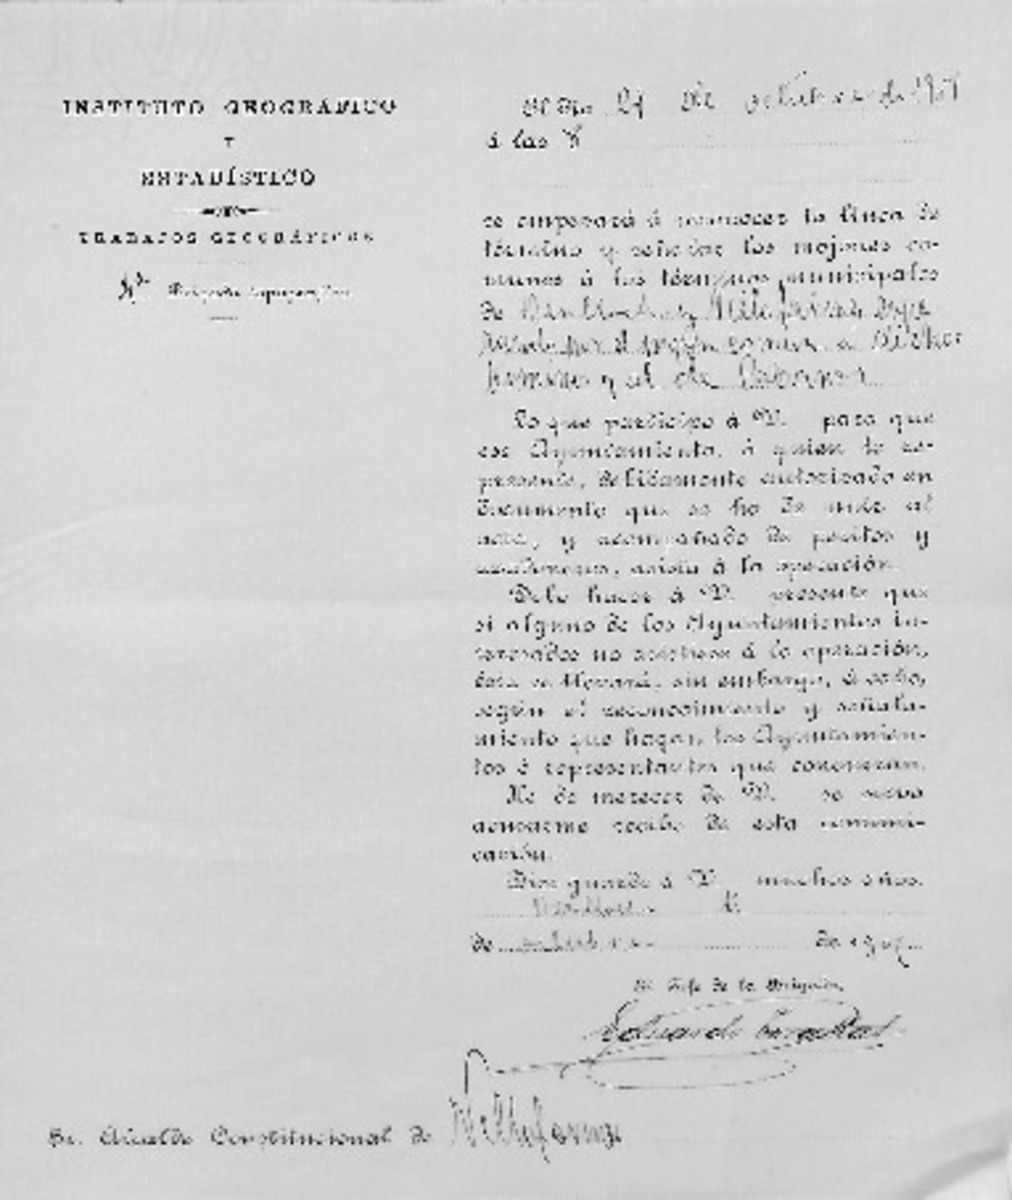 INSTITUTO GEOGRÁFICO
Y
ESTADÍSTICO
TRABAJOS GEOGRÁFICOS
Brigada topográfica
El día 21 de octubre de
á las 8
se empezará á reconocer la línea de
término y señalar los mojones co-
munes á los términos municipales
de
por el mojón común a dichos
términos y al de Cabanes
Lo que participo á V. para que
ese Ayuntamiento, ó quien le re-
presente, debidamente autorizado en
documento que se ha de unir al
acta, y acompañado de peritos y
asista á la operación.
Debo hacer á V. presente que
si alguno de los Ayuntamientos in-
teresados no asistiese á la operación,
ésta se llevará, sin embargo, á cabo,
según el reconocimiento y señala-
miento que hagan los Ayuntamien-
tos ó representantes que concurran.
He de merecer de V. se sirva
acusarme recibo de esta comuni-
cación.
Dios guarde á V. muchos años.
de octubre de
El Jefe de la Brigada,
Eduardo
Sr. Alcalde Constitucional de Villafamés